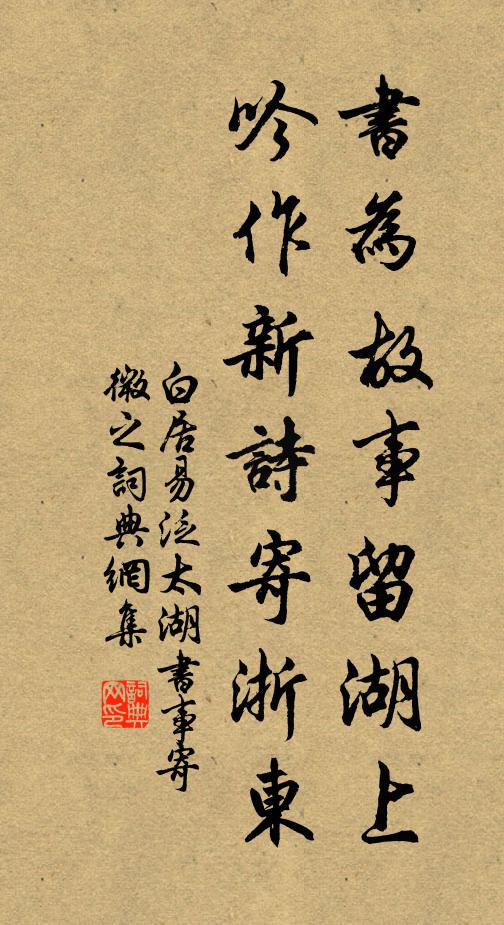 書為故事留湖上
吟作新詩寄浙東
白居易泛太湖書事寄
微之詞典網集
詞典
网印